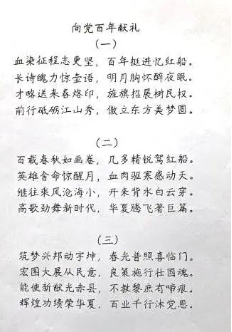 向党百年献礼
（一）
血染征程志更坚，百年挺进忆红船。
长诗魄力惊垄语，明月胸怀醉夜眠。
才略送来春烙印，旌旗招展树民权。
前行砥砺江山秀，傲立东方美梦圆。
（二）
百载春秋如画卷，几多精锐驾红船。
英雄舍命惊醒月，血肉驱寒感动天。
继往乘风沧海小，开来背水白云穿。
高歌劲舞新时代，华夏腾飞著巨篇。
（三）
筑梦兴邦动字坤，春光普照喜临门。
宏图大展从民意，良策施行壮国魂。
能使新献光赤县，不教黎庶有啼痕。
辉煌功绩荣华夏，百业千行沐党恩。